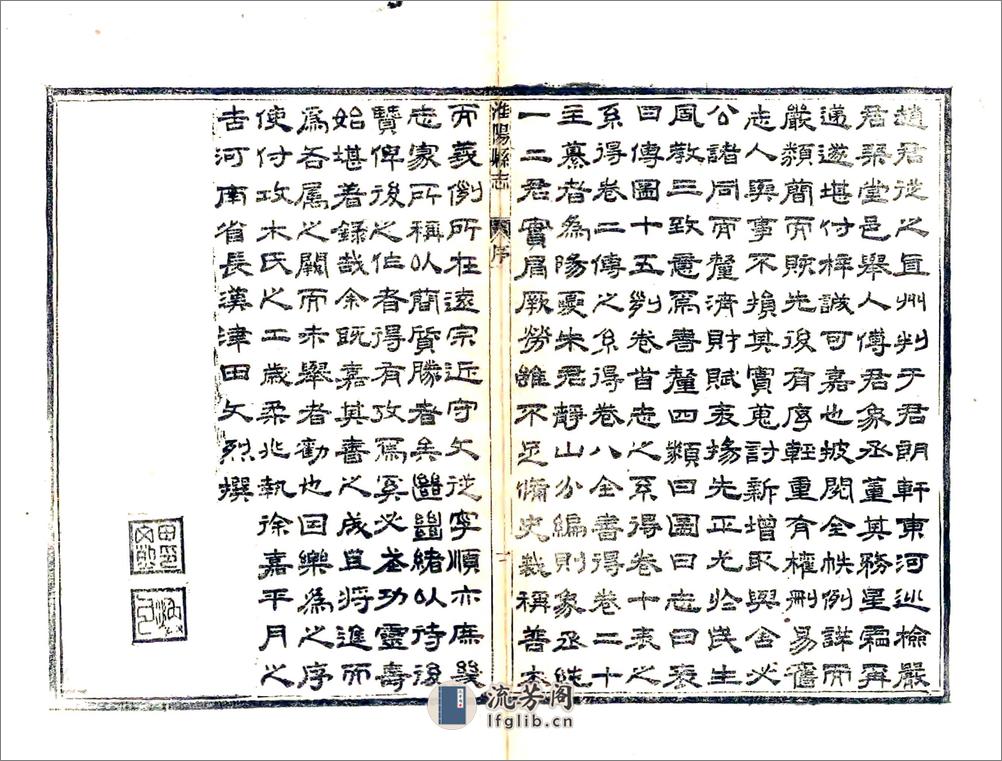 趙君從之直州判于君朗軒東河巡檢嚴
君琴堂邑舉人傅君象丞董其務星霜再
遞遂堪付梓誠可嘉也披閱全帙例詳而
嚴類簡而賅先後有序輕重有權刪易舊
志人與事不損其實蒐討新增取與舍必
公諸同而釐濟財賦表揚先正尤於民生
風教三致意焉書釐四類曰圖曰志曰表
曰傳圖十五列卷首志之系得卷十表之
系得卷二傳之系得卷八全書得卷二十
主纂者為陽夏朱君靜山分編則象丞繼
一二君實肩厥勞雖不足備史裁稱善本
淮陽縣志 序 二
而義例所在遠宗近守文從字順亦庶幾
志家所稱以簡質勝者矣緒以待後
賢俾後之作者得有攷焉奚必武功靈壽
始堪著錄哉余既嘉其書之成且將進而
為各屬之闕而未舉者勸也因樂為之序
使付攻木氏之工歲柔兆執徐嘉平月之
吉河南省長漢津田文烈撰
流芳閣
lfglib.cn